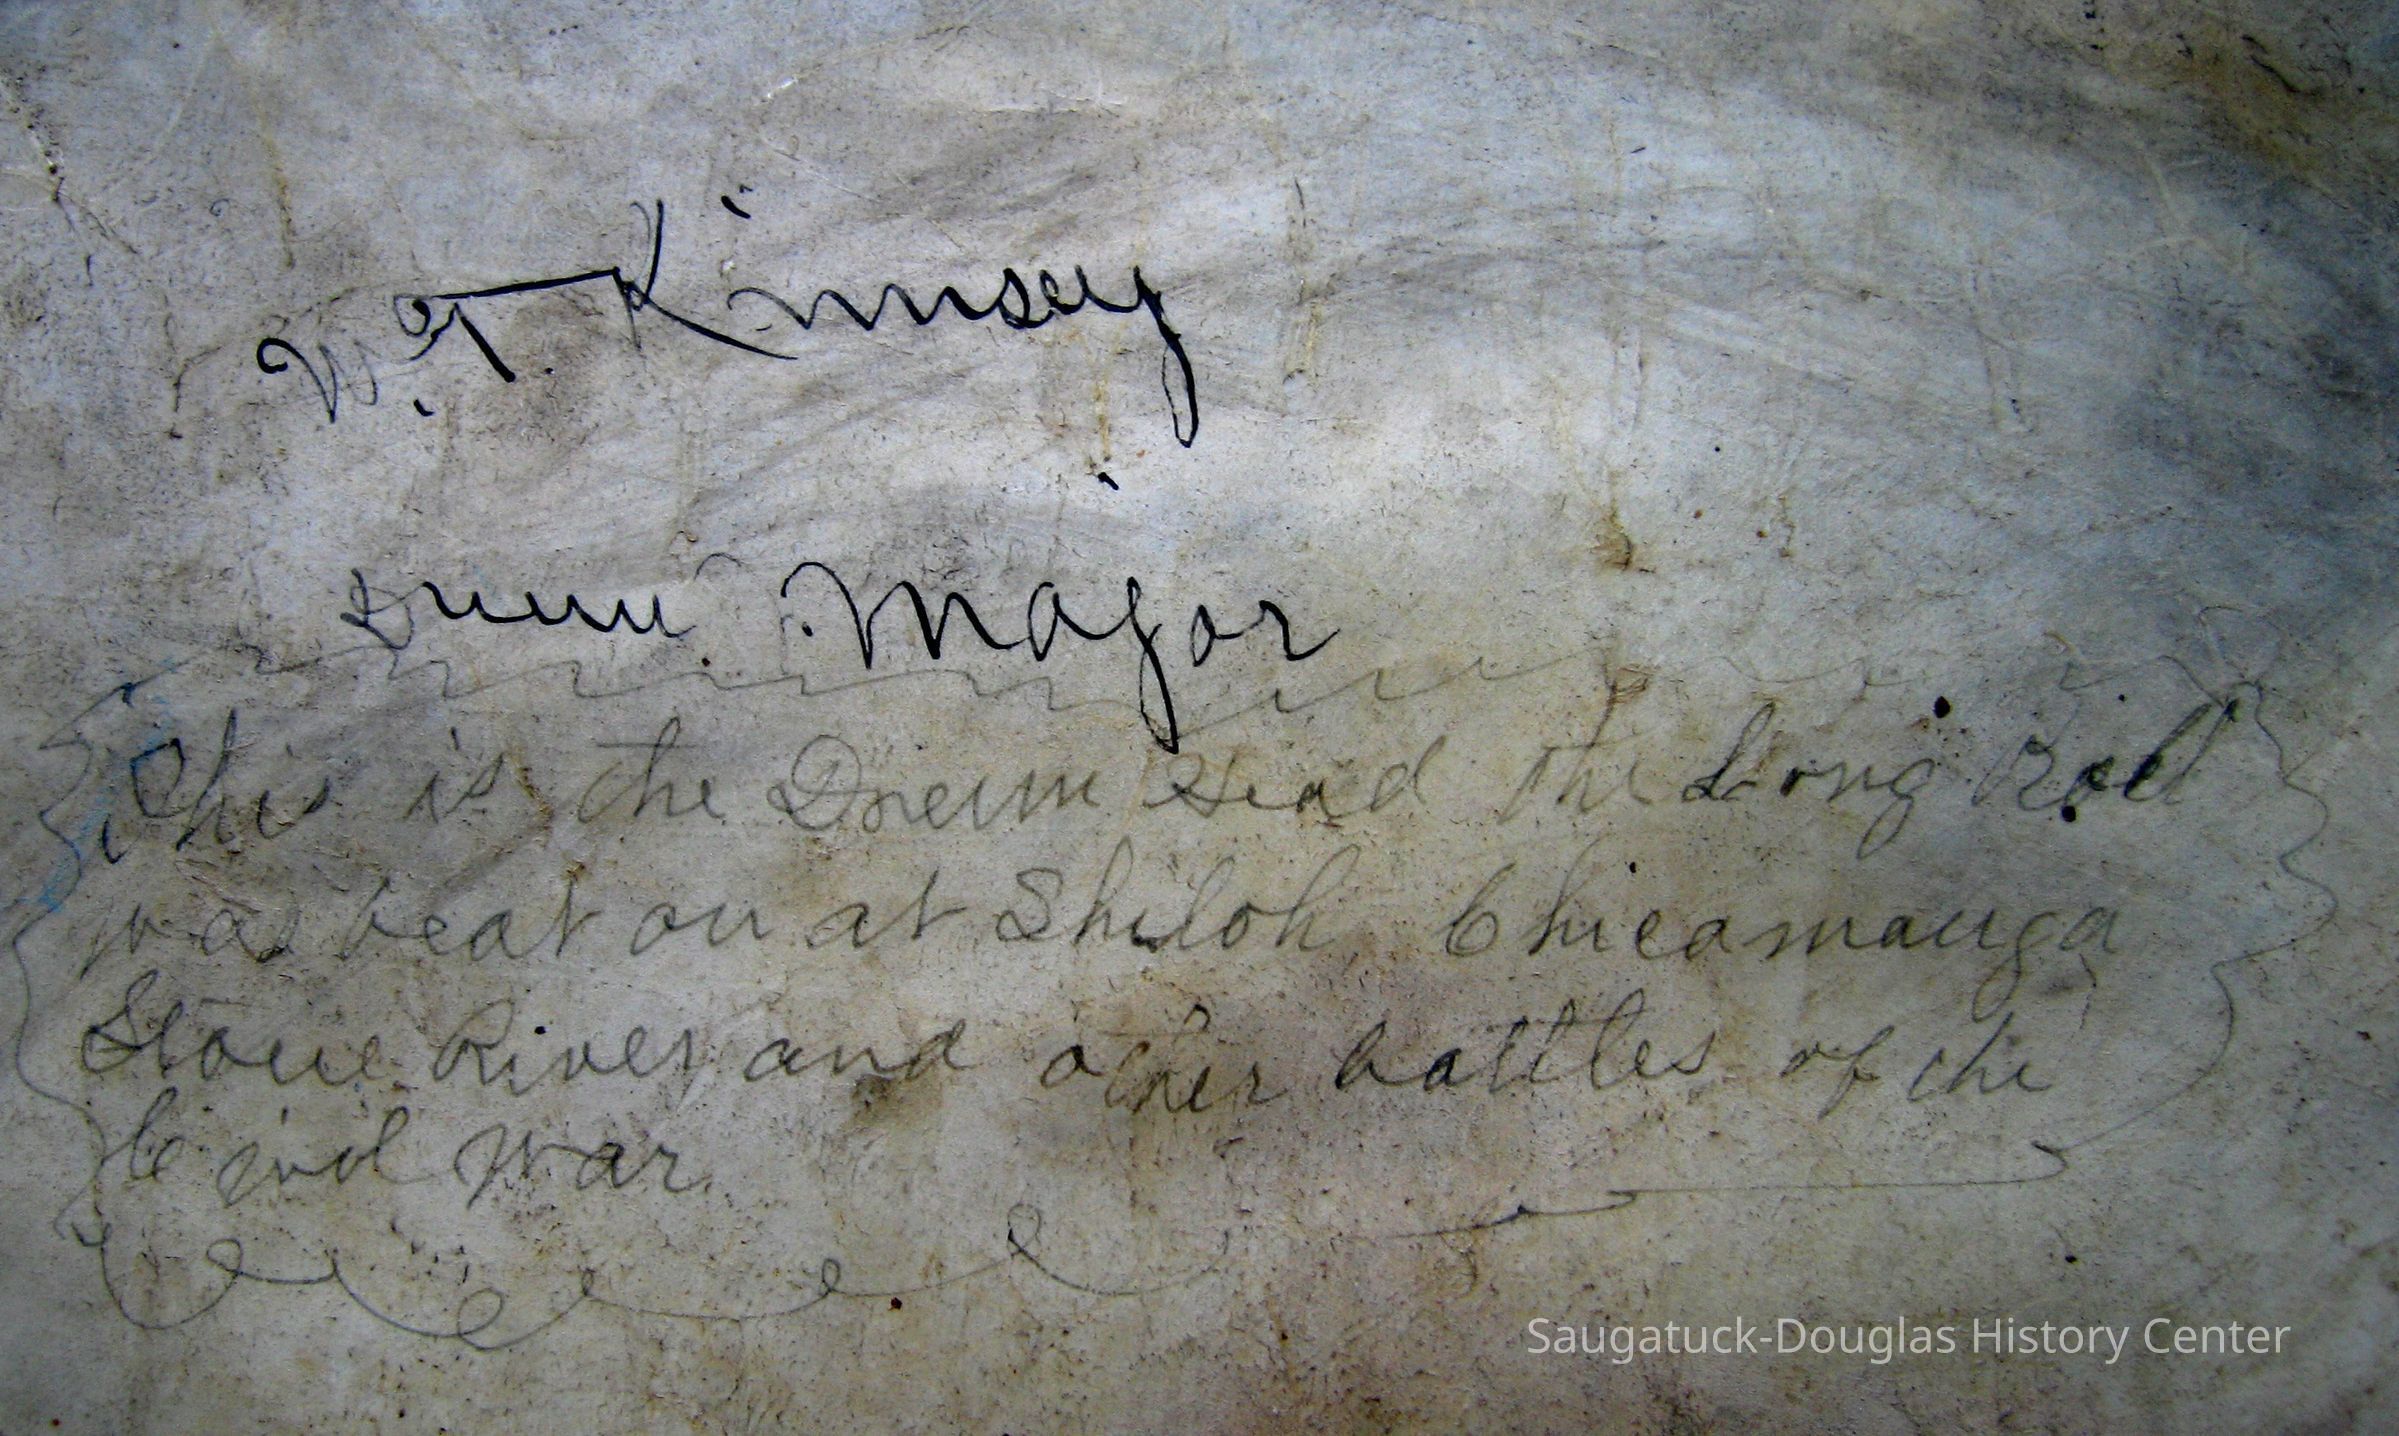 W. T. Kimsey
Drum Major
This is the Drum Head the Long Roll
was beat on at Shiloh Chicamauga
Stone River and other battles of the
Civil War.
Saugatuck-Douglas History Center